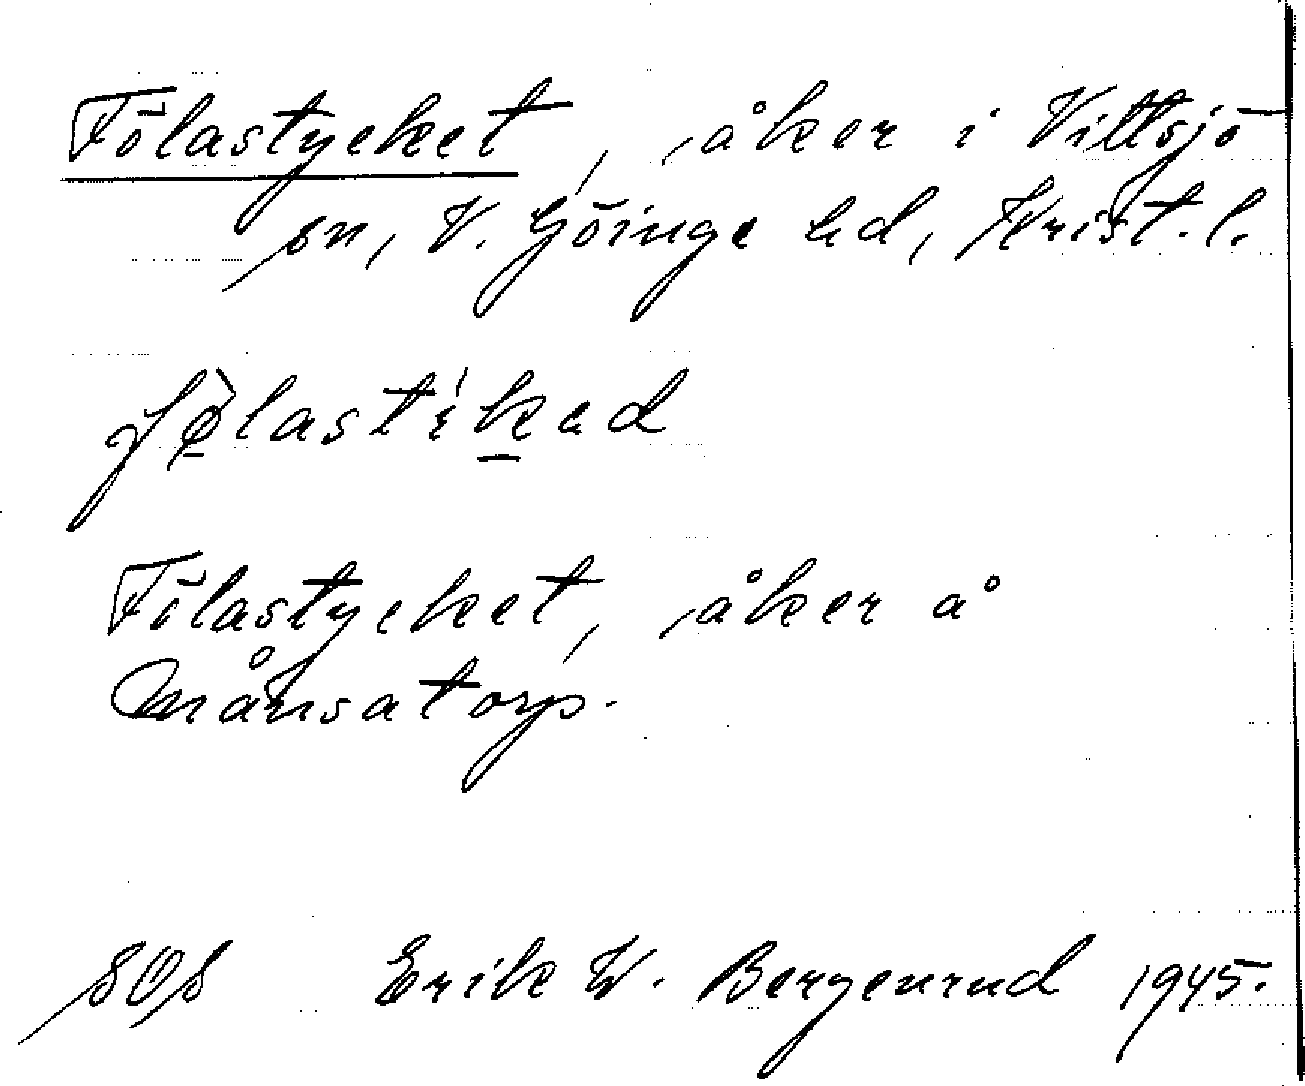 Fölastycket, åker i Vittsjö
sn, V. Göinge hd, Krist. l.
fø̀lastíkad
Fölastycket, åker å
Månsatorp.
SOS Erik W. Bergenrud 1945.